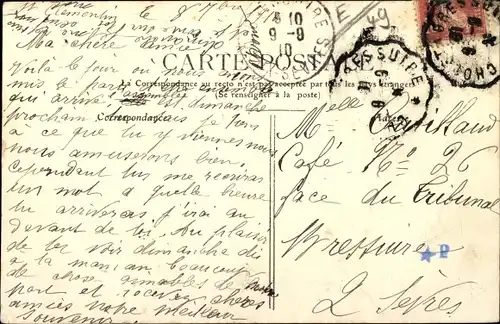 St Clémentin le 8 7bre 1910
Ma chère amie
Voilà le jour où nous
mis le parti
qui arrive dimanche
prochain je tiens
a ce que tu y viennes nous
nous amuserons bien.
Cependant tu me récriras
un mot a quelle heure
tu arriveras j'irai au
devant de toi. Au plaisir
de te voir dimanche dis
a ta maman, beaucoup
de chose aimables de notre
part et recevez chères
amies notre meilleur
Souvenir
CARTE POSTALE
La Correspondance au recto n'est pas acceptée par tous les pays étrangers
(Se renseigner à la poste)
Correspondance
Adresse
E 49
BRESSUIRE
9-9
10
DEUX SEVRES
BRESSUIRE
CHOLET
Melle
Café No 26
face du Tribunal
Bressuire
2 Sèvres
P